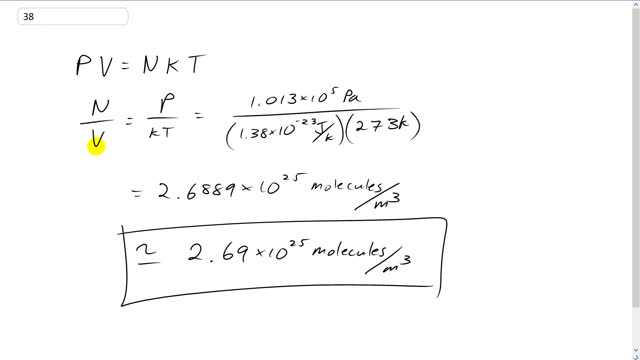 38
PV = NKT
N/V = P/KT = 1.013×10⁵ Pa / (1.38×10⁻²³ J/k)(273k)
= 2.6889×10²⁵ molecules/m³
≃ 2.69×10²⁵ molecules/m³